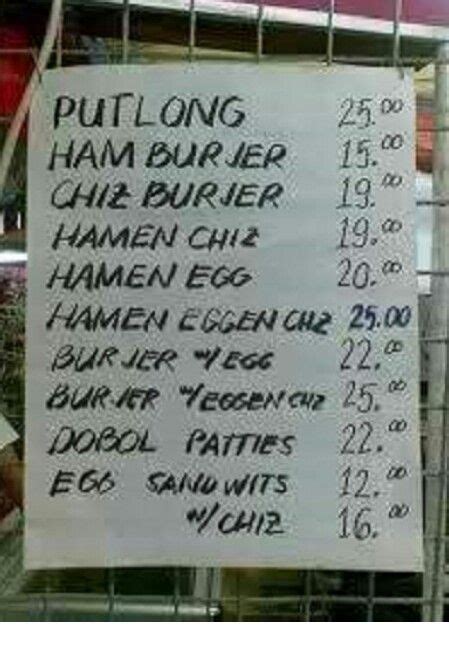 PUTLONG 25.00
HAM BURJER 15.00
CHIZ BURJER 19.00
HAMEN CHIZ 19.00
HAMEN EGG 20.00
HAMEN EGGEN CHZ 25.00
BURJER W/ EGG 22.00
BURJER W/ EGGEN CHZ 25.00
DOBOL PATTIES 22.00
EGG SANDWITS 12.00
W/ CHIZ 16.00